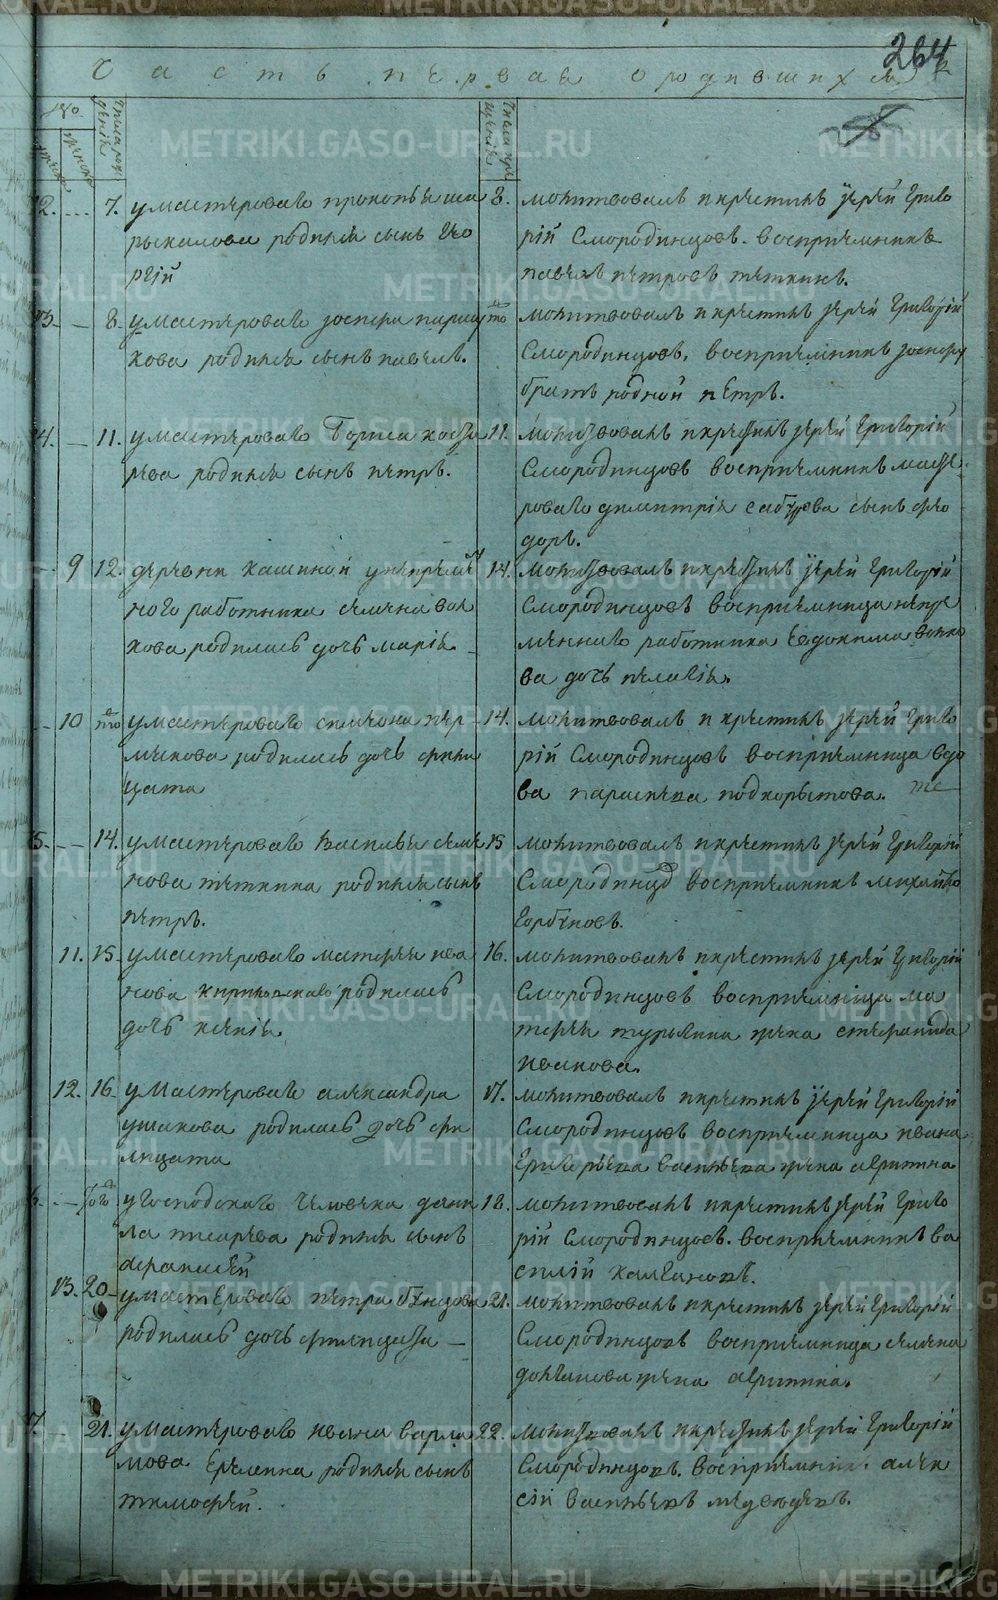 264
Часть первая о родившихся
12. 7. у мастероваго прокопья ша
рыкалова родился сынъ Гео
ргій
8. молитвовалъ и крестилъ іерей Григо
рій Смородинцовъ. восприемникъ
павелъ петровъ теткинъ.
13. 8. у мастероваго
кова родился сынъ павелъ.
то молитвовалъ и крестилъ іерей Григорій
Смородинцовъ, восприемникъ
братъ родной петръ.
14. 11. у мастероваго Бориса
рева родился сынъ петръ.
11. молитвовалъ и крестилъ іерей Григорій
Смородинцовъ восприемникъ масте
роваго димитрія сынъ фео
доръ.
9 12. деревни кашиной у непремѣн
ного работника
кова родилась дочь марія
14. молитвовалъ и крестилъ іерей Григорій
Смородинцовъ восприемница непре
меннаго работника Евдокима волко
ва дочь пелагія.
10 то у мастероваго симеона пер
мякова родилась дочь фили
цата
14. молитвовалъ и крестилъ іерей Григо
рій Смородинцовъ восприемница вдо
ва параскева подкорытова.
15. 14. у мастероваго Василья семе
нова теткина родился сынъ
петръ.
15 молитвовалъ и крестилъ іерей Григорій
Смородинцо восприемникъ михайло
Горбуновъ.
11. 15. у мастероваго матвея ива
нова родилась
дочь ксенія
16. молитвовалъ и крестилъ іерей Григорій
Смородинцовъ восприемница ма
твея жена степанида
иванова.
12. 16 у мастероваго александра
ушакова родилась дочь фи
лицата
17. молитвовалъ и крестилъ іерей Григорій
Смородинцовъ восприемница ивана
Григорьева васильева жена агрипина
у господскаго человека дани
ла писарева родился сынъ
афанасей
18. молитвовалъ и крестилъ іерей Григо
рій Смородинцовъ. восприемникъ ва
силій калгановъ.
13. 20 у мастероваго петра бунцова
родилась дочь филицата
21. молитвовалъ и крестилъ іерей Григорій
Смородинцовъ восприемница
жена агрипина.
17 21. у мастероваго ивана варла
мова Еремина родился сынъ
тимофей.
22. молитвовалъ и крестилъ іерей Григорій
Смородинцовъ. восприемникъ алек
сій васильевъ медведевъ.
METRIKI.GASO-URAL.RU